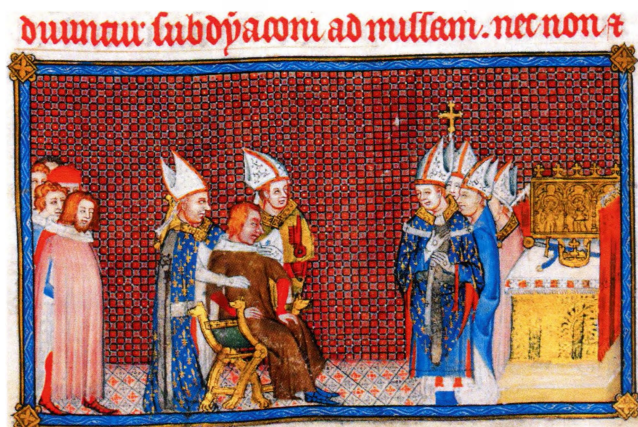 duuntur subdyaconi ad missam. nec non &